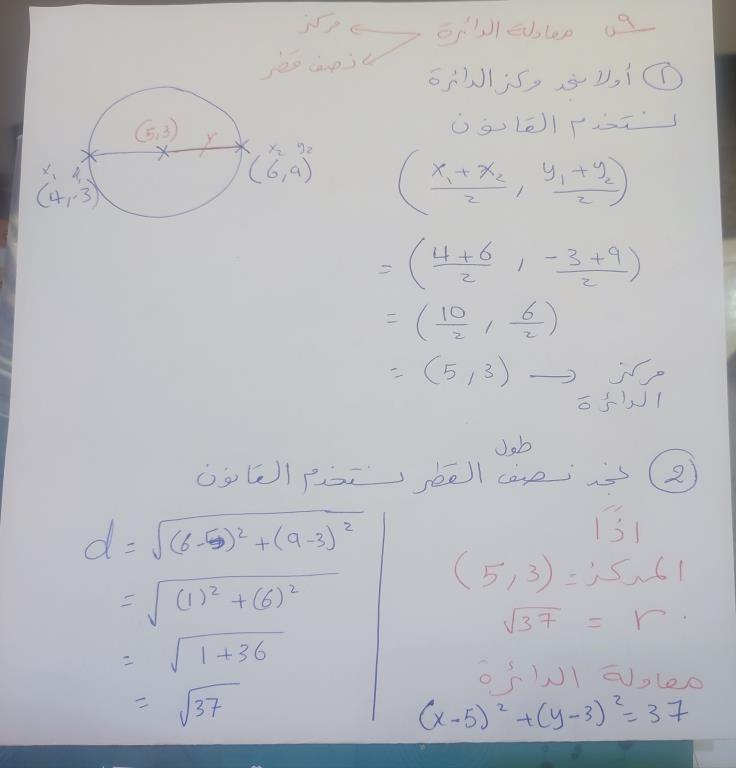 س9 معادلة الدائرة
مركز
نصف قطر
① أولا نجد مركز الدائرة
نستخدم القانون
(5,3) r
x₁ y₁
(4,-3)
x₂ y₂
(6,9)
((x₁+x₂)/2 , (y₁+y₂)/2)
= ((4+6)/2 , (-3+9)/2)
= (10/2 , 6/2)
= (5,3) → مركز
الدائرة
② نجد طول نصف القطر نستخدم القانون
d = √((6-5)² + (9-3)²)
= √((1)² + (6)²)
= √(1+36)
= √37
اذًا
المركز = (5,3)
r = √37
معادلة الدائرة
(x-5)² + (y-3)² = 37